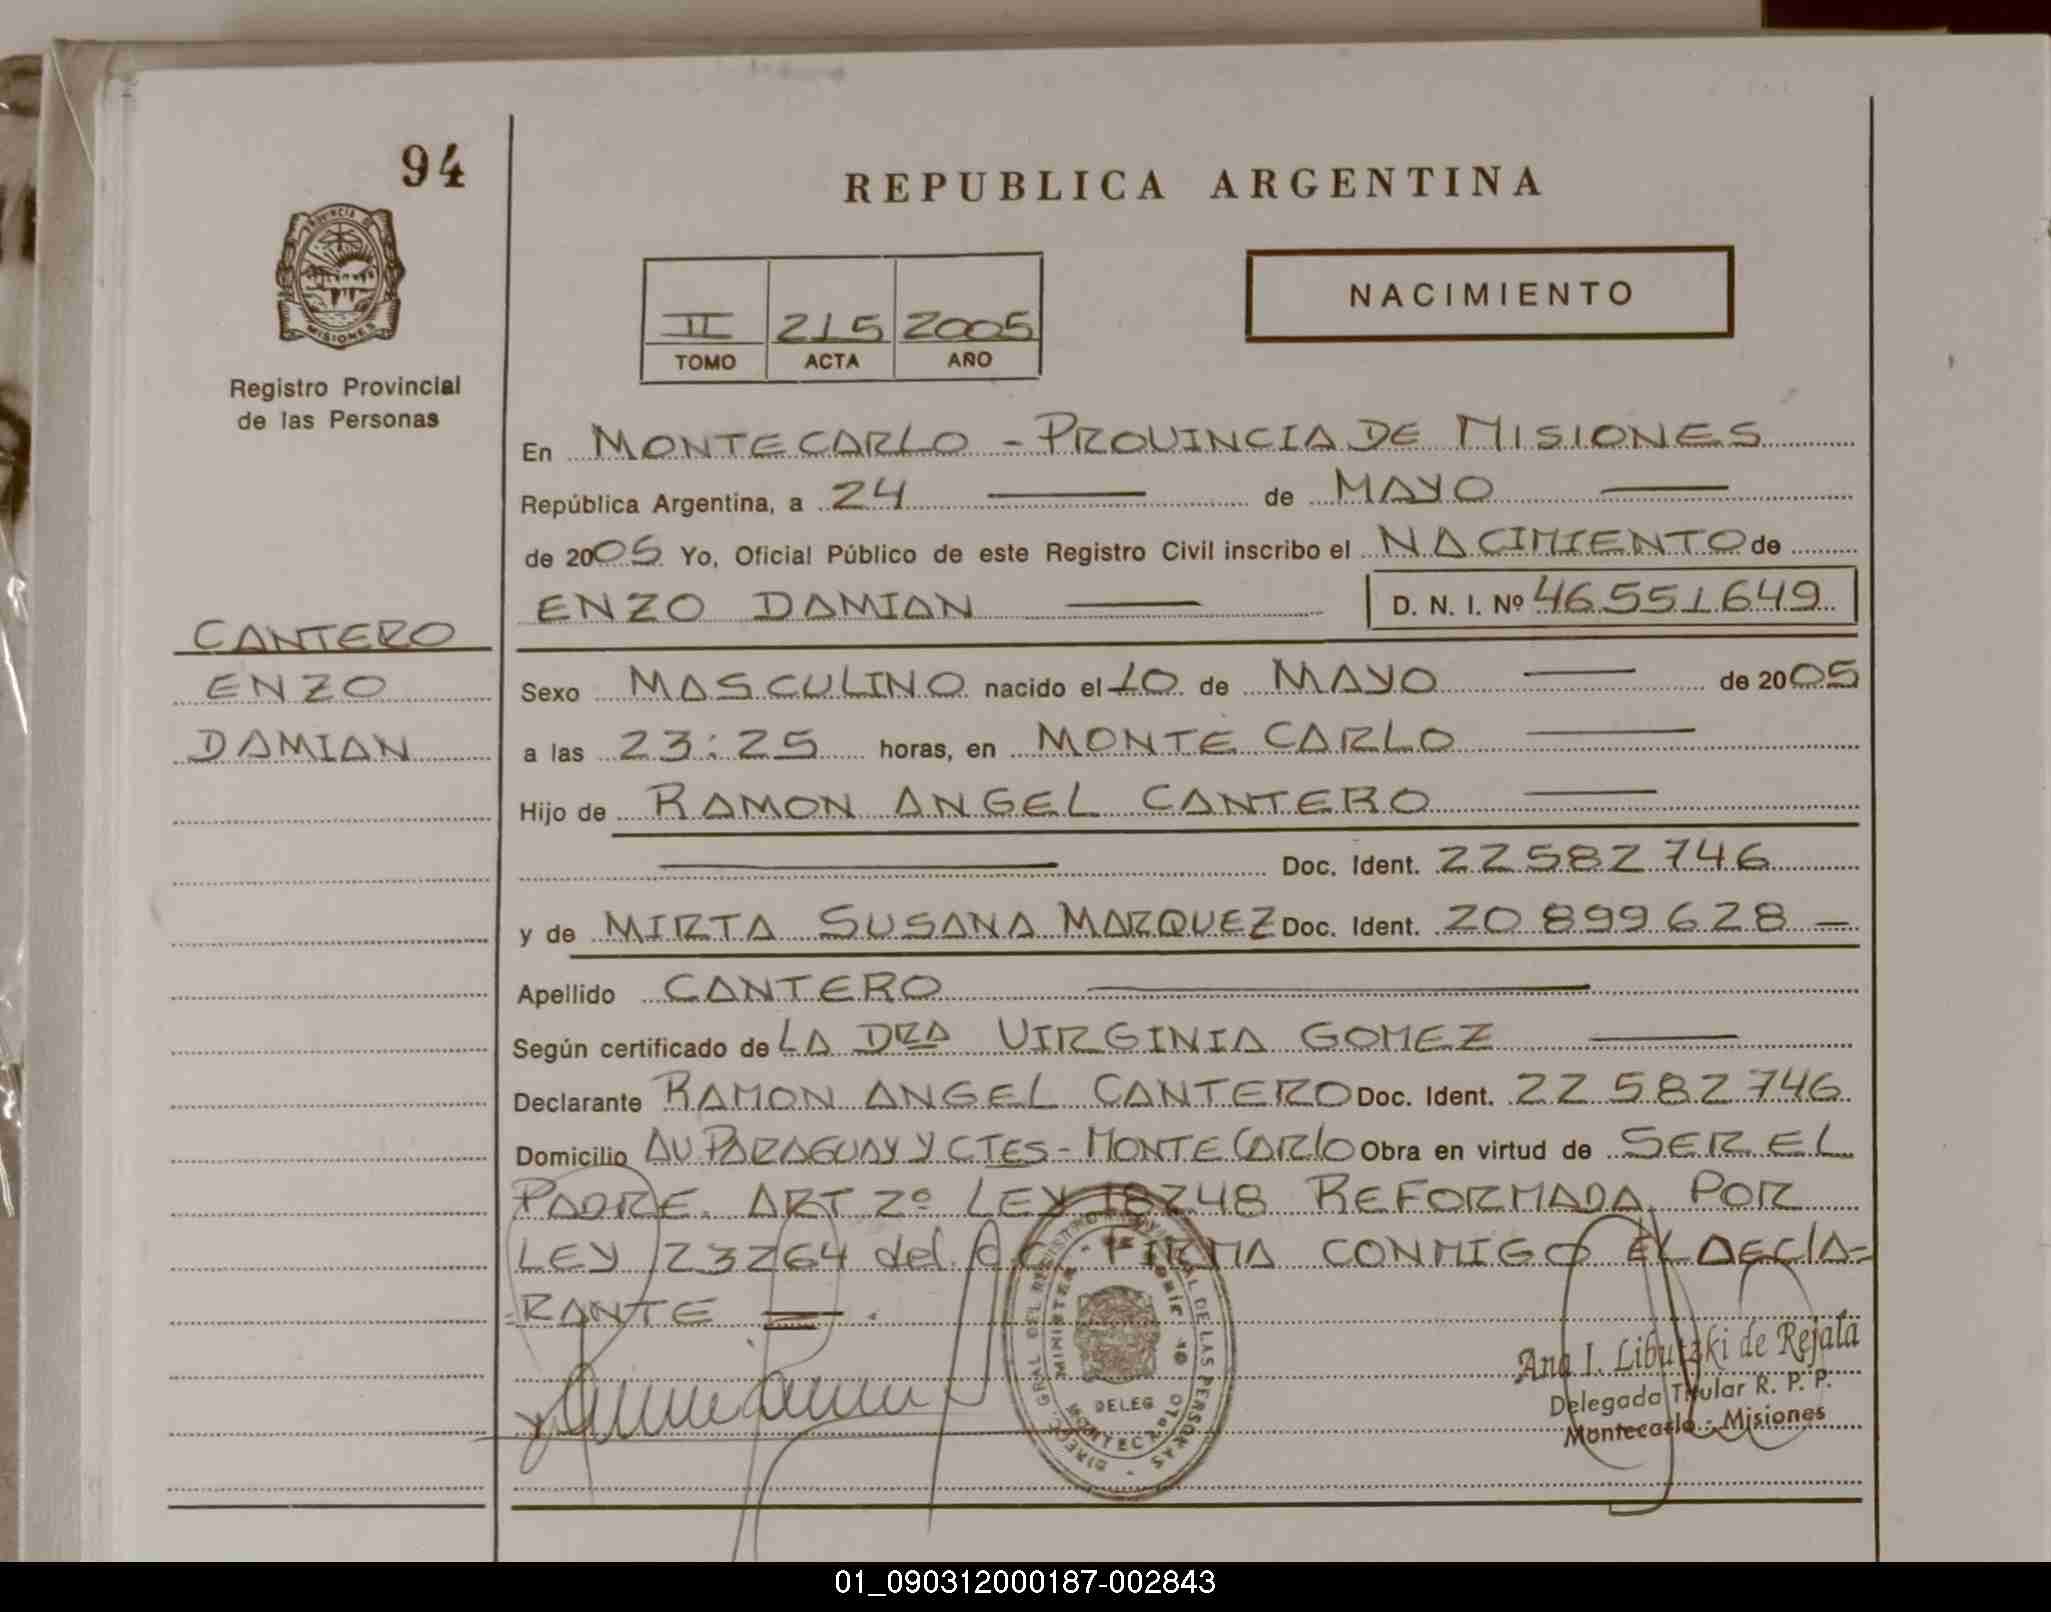 94
REPUBLICA ARGENTINA
PROVINCIA DE
MISIONES
Registro Provincial
de las Personas
II 215 2005
TOMO ACTA AÑO
NACIMIENTO
En MONTECARLO - PROVINCIA DE MISIONES
República Argentina, a 24 de MAYO
de 2005 Yo, Oficial Público de este Registro Civil inscribo el NACIMIENTO de
ENZO DAMIAN D. N. I. Nº 46551649
CANTERO
ENZO
DAMIAN
Sexo MASCULINO nacido el 10 de MAYO de 2005
a las 23:25 horas, en MONTE CARLO
Hijo de RAMON ANGEL CANTERO
Doc. Ident. 22582746
y de MIRTA SUSANA MARQUEZ Doc. Ident. 20899628 -
Apellido CANTERO
Según certificado de LA DRA VIRGINIA GOMEZ
Declarante RAMON ANGEL CANTERO Doc. Ident. 22582746
Domicilio AV PARAGUAY Y CTES - MONTE CARLO Obra en virtud de SER EL
PADRE. ART 2º LEY 18248 REFORMADA POR
LEY 23264 del C.C. FIRMA CONMIGO EL DECLA=
RANTE
DELEG
MONTECARLO
DE LAS PERSONAS
Ana I. Libutzki de Rejala
Delegada Titular R. P. P.
Montecarlo - Misiones
01_090312000187-002843